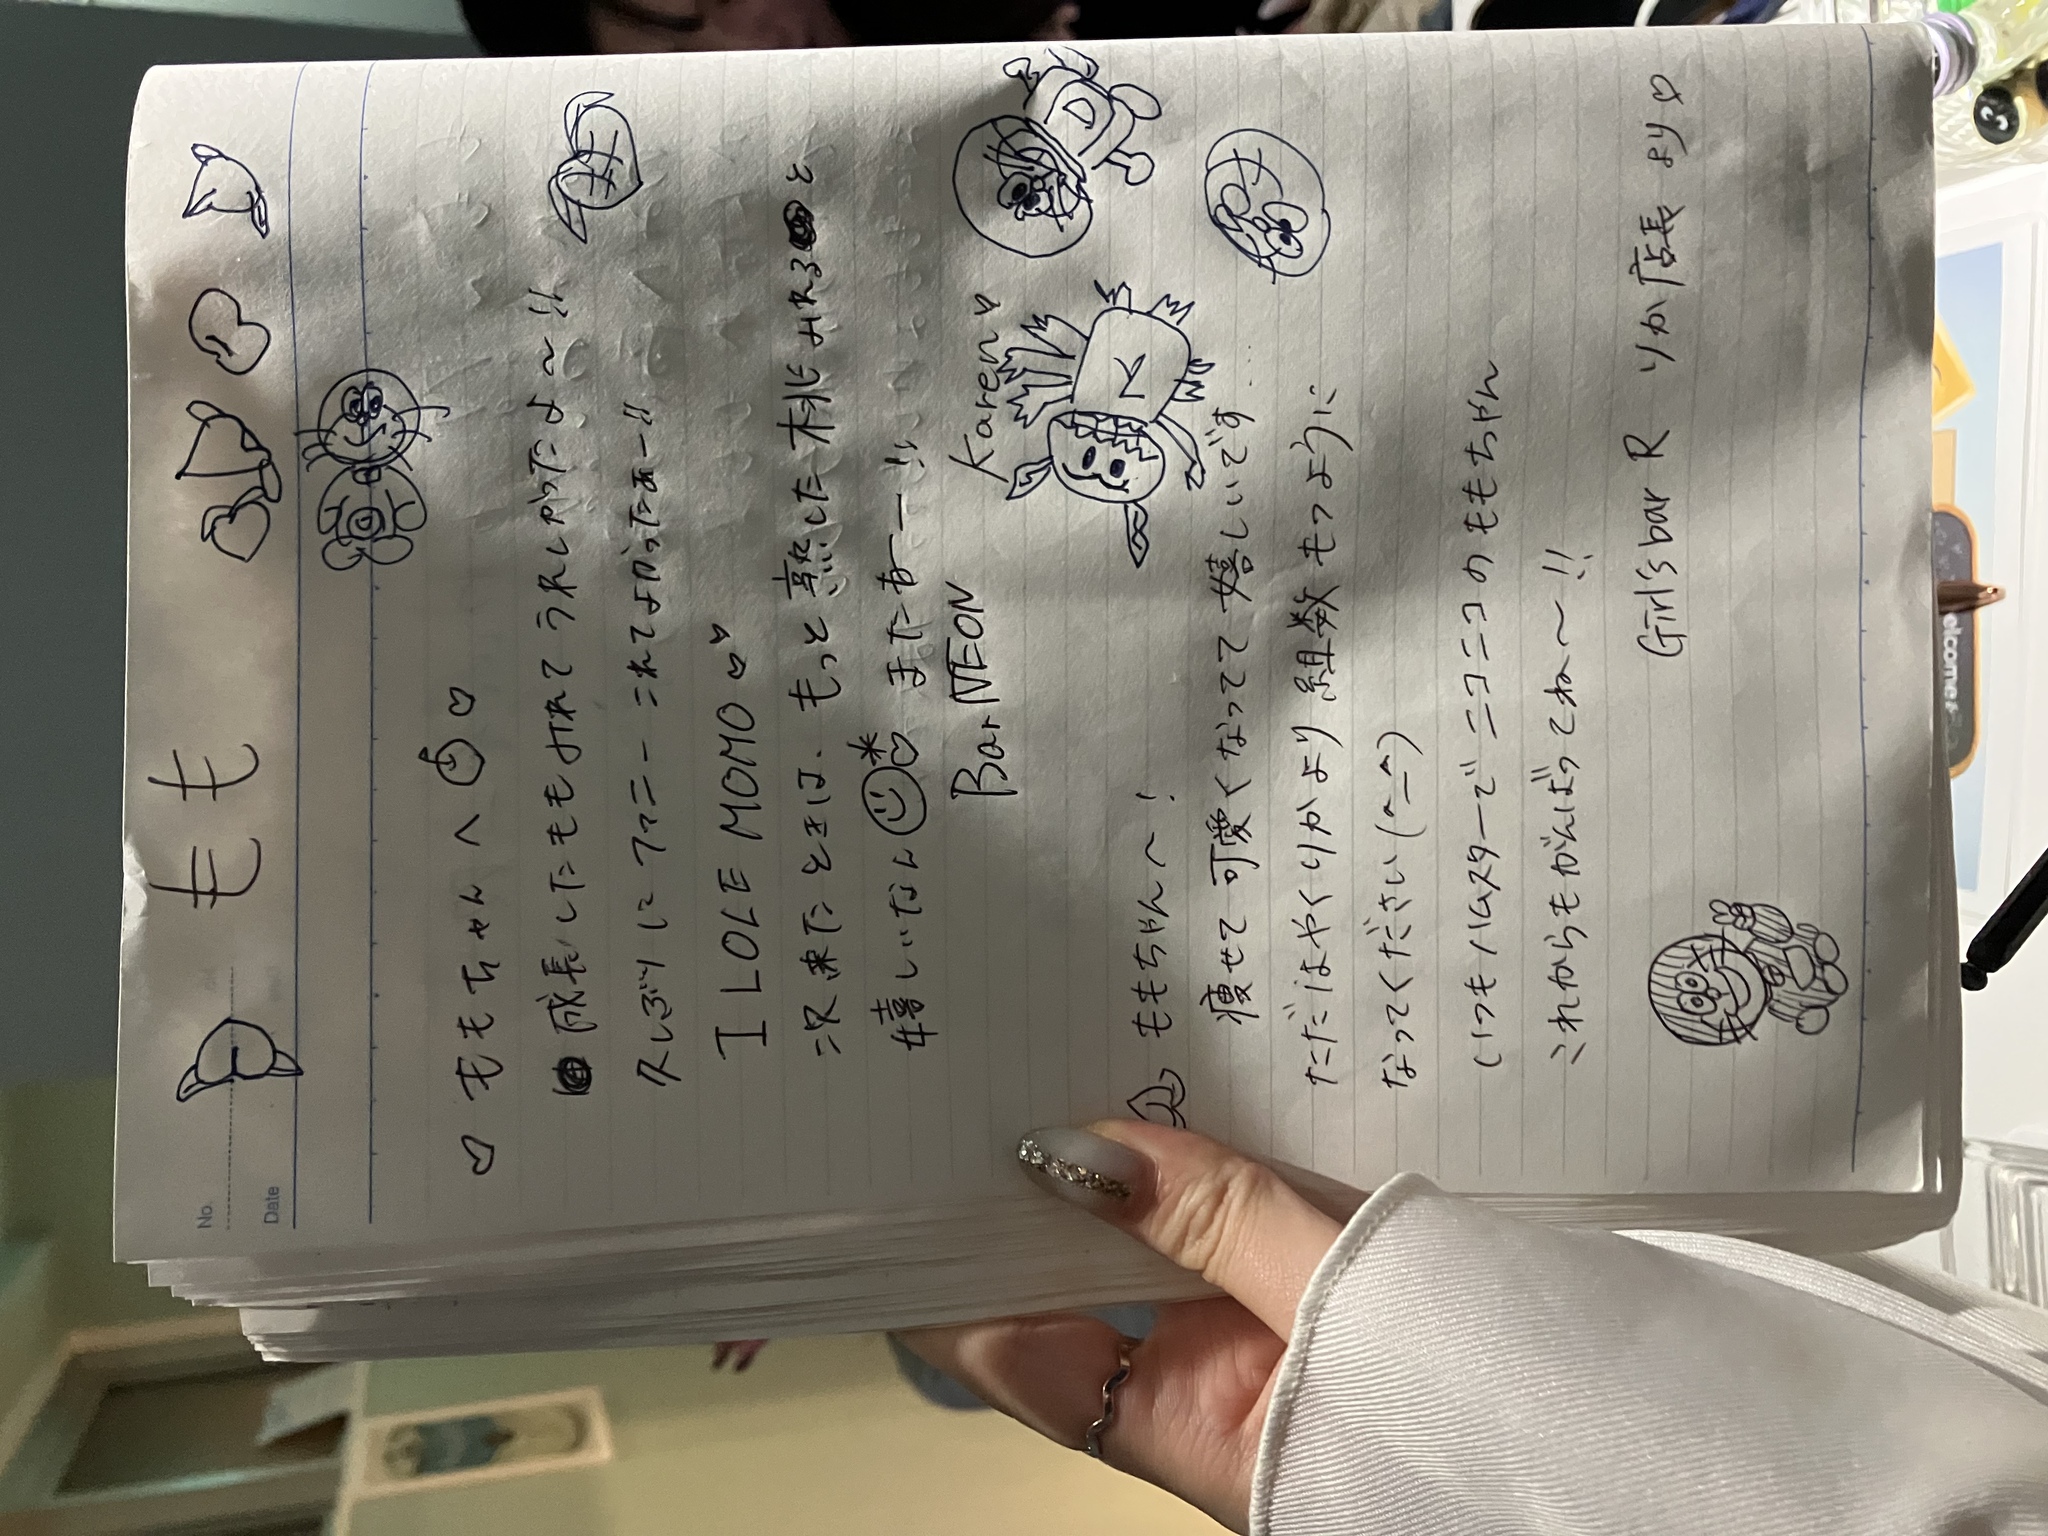 No.
Date
もも
ももちゃんへ
成長したももみれてうれしかったよ〜!!
久しぶりにファニーこれてよかったぁー!!
I LOLE MOMO
次来たときは、もっと熟した桃みれると
嬉しいなん またあーー!!
Bar NEON Karen
D
K
ももちゃん〜!
痩せて可愛くなってて嬉しいです…
ただはやくりかより組数もつように
なってください(^_^)
いつもハムスターでニコニコのももちゃん
これからもがんばってね〜!!
Girl's bar R りか店長より
elcome